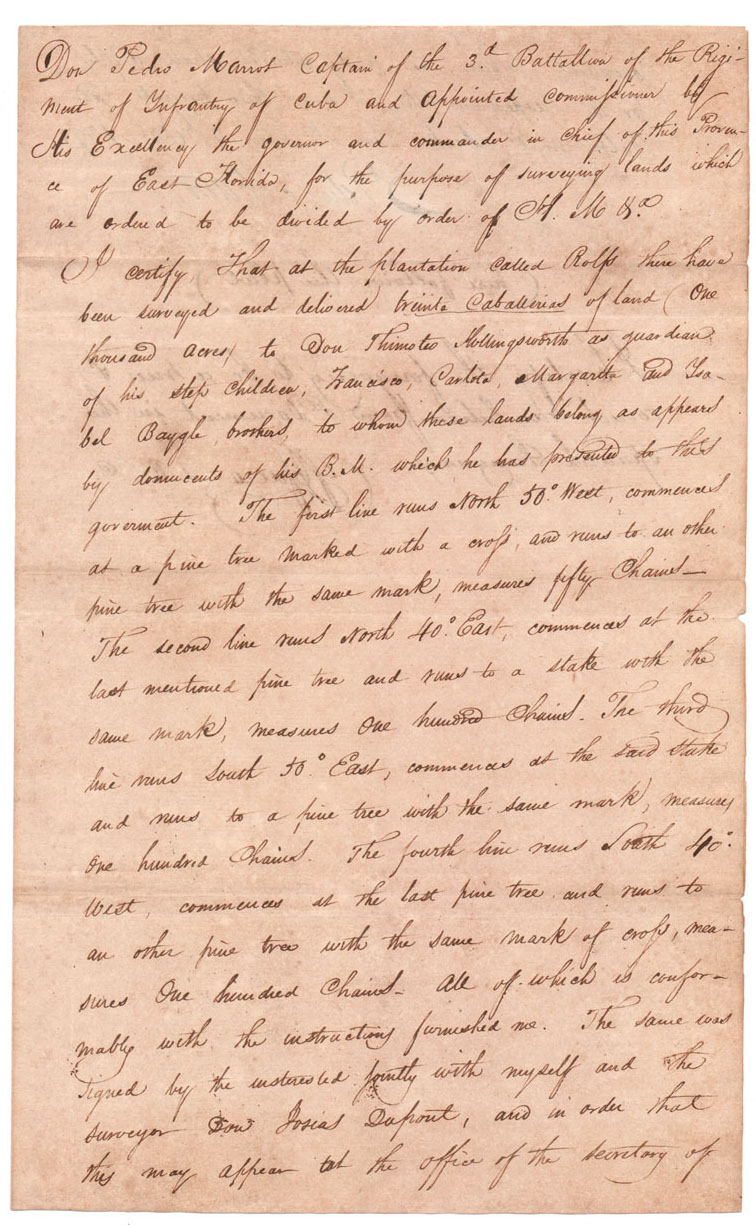 Don Pedro Marrot Captain of the 3.d Battallion of the Rigi-
ment of Infrantry of Cuba and appointed commissioner by
His Excellency the governor and commander in chief of this Provin-
ce of East Florida, for the purpose of surveying lands which
are ordered to be divided by order of H. M &a.
I certify, That at the plantation called Rolfs there have
been surveyed and delivered treinta Caballerias of land (One
thousand acres) to Don Thimoteo Hollingsworth as guardian
of his step children, Francisco, Carlota, Margarita and Ysa-
bel Baygle, brothers, to whom these lands belong as appears
by domucents of his B.M. which he has presented to this
goverment. The first line runs North 50°. West, commences
at a pine tree marked with a cross, and runs to an other
pine tree with the same mark, measures fifty Chains—
The second line runs North 40°. East, commences at the
last mentioned pine tree and runs to a stake with the
same mark, measures One hundred Chains. The third
line runs South 50°. East, commences at the said stake
and runs to a pine tree with the same mark, measures
One hundred Chains. The fourth line runs South 40°.
West, commences at the last pine tree and runs to
an other pine tree with the same mark of cross, mea-
sures One hundred Chains— All of which is confor-
mably with the instructions furnished me. The same was
signed by the insterested jointly with myself and the
surveyor Don Josias Dupont, and in order that
this may appear at the office of the secretary of